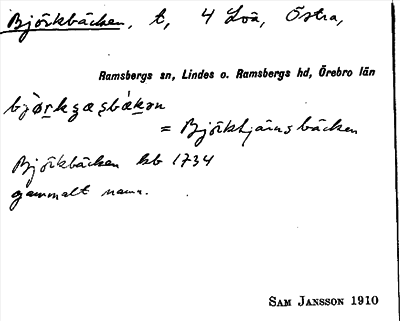 Björkbäcken, t, 4 Löa, Östra,
Ramsbergs sn, Lindes o. Ramsbergs hd, Örebro län
= Björktjärnsbäcken
Björkbäcken kb 1734
gammalt namn.
SAM JANSSON 1910